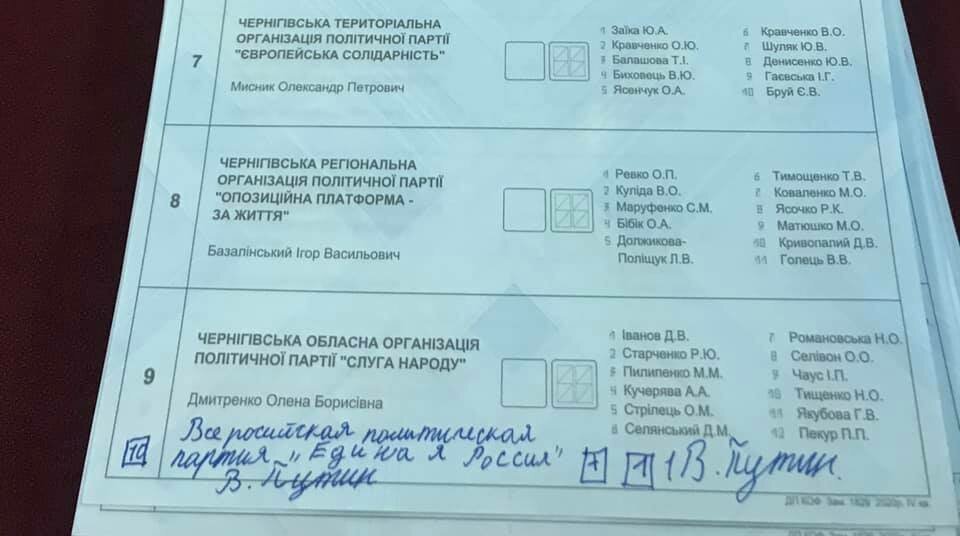 7
ЧЕРНІГІВСЬКА ТЕРИТОРІАЛЬНА
ОРГАНІЗАЦІЯ ПОЛІТИЧНОЇ ПАРТІЇ
"ЄВРОПЕЙСЬКА СОЛІДАРНІСТЬ"
Мисник Олександр Петрович
1 Заїка Ю.А.
2 Кравченко О.Ю.
3 Балашова Т.І.
4 Биховець В.Ю.
5 Ясенчук О.А.
6 Кравченко В.О.
7 Шуляк Ю.В.
8 Денисенко Ю.В.
9 Гаєвська І.Г.
10 Бруй Є.В.
8
ЧЕРНІГІВСЬКА РЕГІОНАЛЬНА
ОРГАНІЗАЦІЯ ПОЛІТИЧНОЇ ПАРТІЇ
"ОПОЗИЦІЙНА ПЛАТФОРМА -
ЗА ЖИТТЯ"
Базалінський Ігор Васильович
1 Ревко О.П.
2 Куліда В.О.
3 Маруфенко С.М.
4 Бібік О.А.
5 Должикова-
Поліщук Л.В.
6 Тимощенко Т.В.
7 Коваленко М.О.
8 Ясочко Р.К.
9 Матюшко М.О.
10 Кривопалий Д.В.
11 Голець В.В.
9
ЧЕРНІГІВСЬКА ОБЛАСНА ОРГАНІЗАЦІЯ
ПОЛІТИЧНОЇ ПАРТІЇ "СЛУГА НАРОДУ"
Дмитренко Олена Борисівна
1 Іванов Д.В.
2 Старченко Р.Ю.
3 Пилипенко М.М.
4 Кучерява А.А.
5 Стрілець О.М.
6 Селянський Д.М.
7 Романовська Н.О.
8 Селівон О.О.
9 Чаус І.П.
10 Тищенко Н.О.
11 Якубова Г.В.
12 Пекур П.П.
10 Всеросийская политическая
партия „Единая Россия"
В. Путин
+ 1 1 В. Путин.
ДП КОФ. Зам. 1829. 2020р. IV кв.